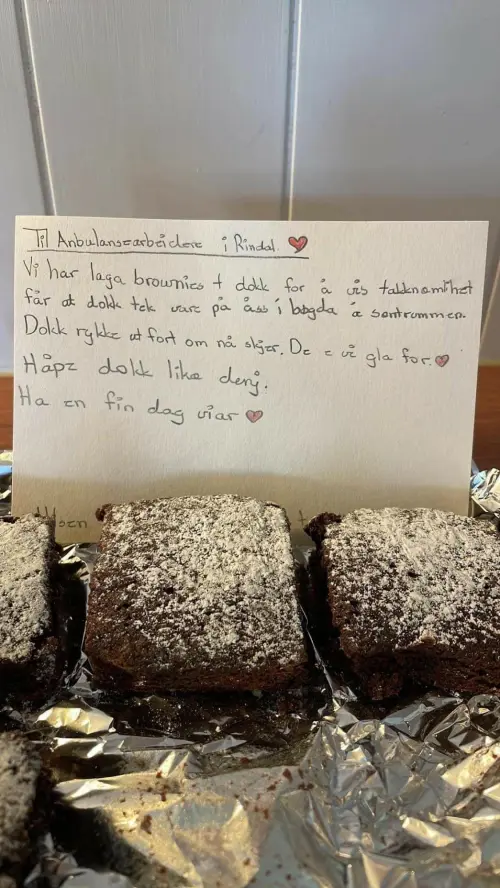 Til Anbulansearbeidere i Rindal.
Vi har laga brownies t dokk for å vis takknemlihet
får at dokk tek vare på åss i bøgda å sentrummen.
Dokk rykke ut fort om nå skjer. De e vi gla for.
Håpe dokk like demj.
Ha en fin dag viar